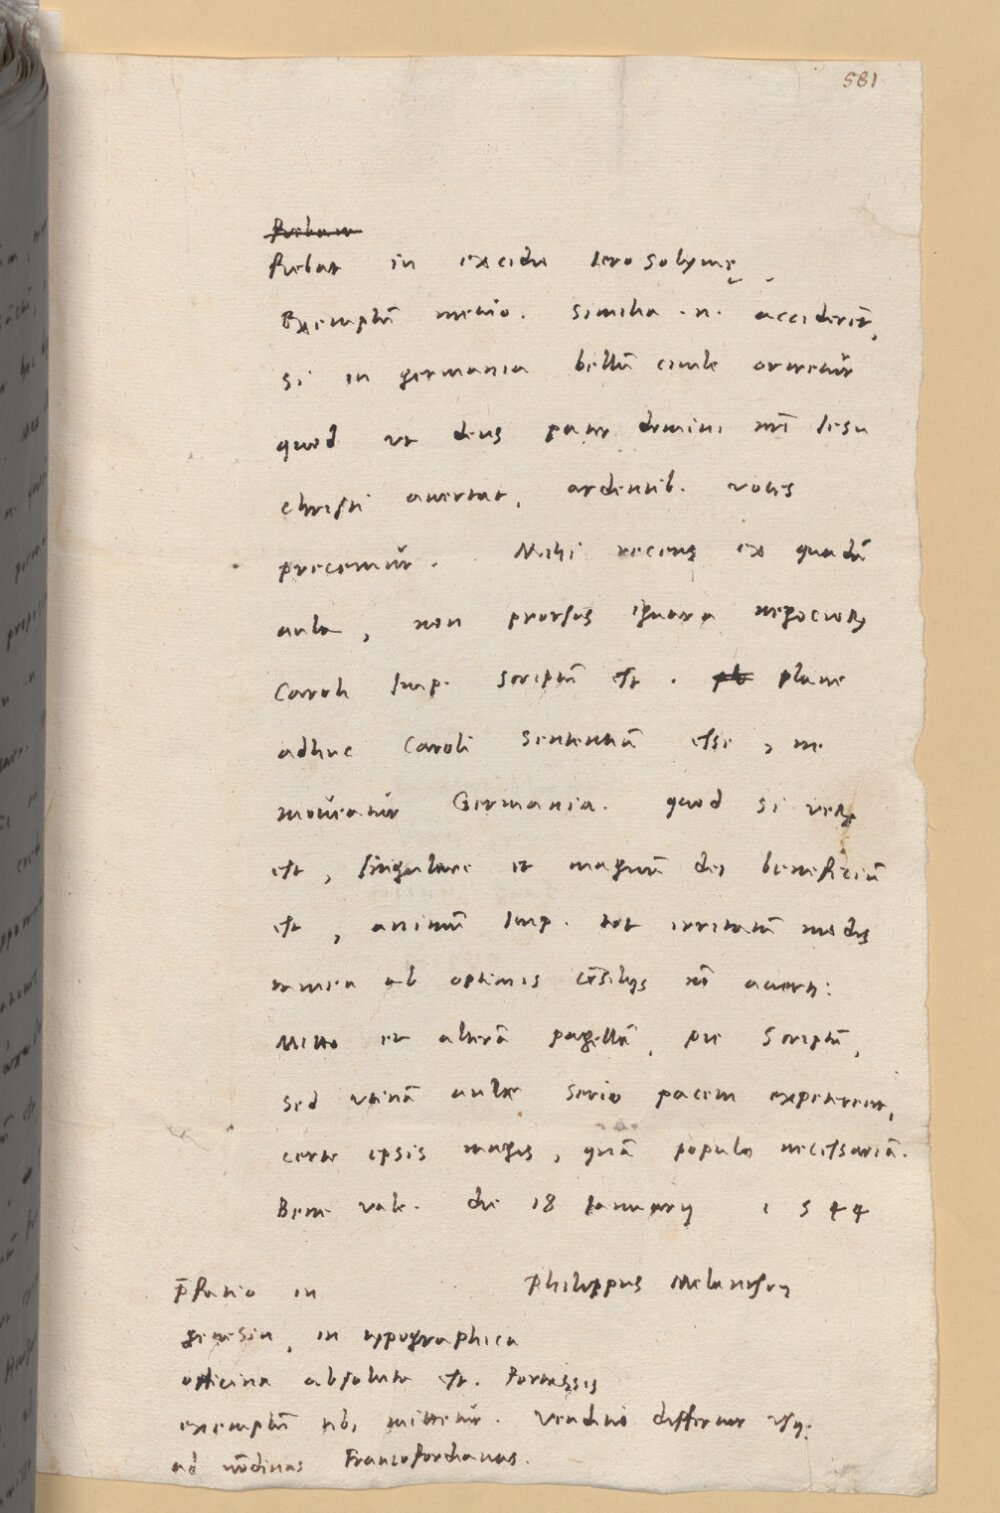 581
fiebat in excidio Ierosolymę.
Exemplū mitto. Similia .n. acciderēt,
si in germania bellū ciuile oriretur
quod ut deus pater domini nr̄i Iesu
christi auertat, ardentib. votis
precemur. Mihi recens ex quadā
aula, non prorsus ignara negociorꝝ
Caroli Imp. scriptū est. plane
adhuc Caroli sententiā esse, ne
moueatur Germania. quod si verꝝ
est, singulare et magnū dei beneficiū
est, animū Imp. tot irritatū modis
tamen ab optimis cōsilijs nō auerti:
Mitto et alterā pagellā, pie scriptā,
sed utinā aulae serio pacem expeterent,
certe ipsis magis, quā populo necessariā.
Bene vale. die 18 Ianuarij 1544
Philippus Melanthon
p̄fatio in
genesin, in typographica
officina absoluta est. fortassis
exemplū tibi mittetur. Venditio differtur usq;
ad nūdinas Francofordianas.